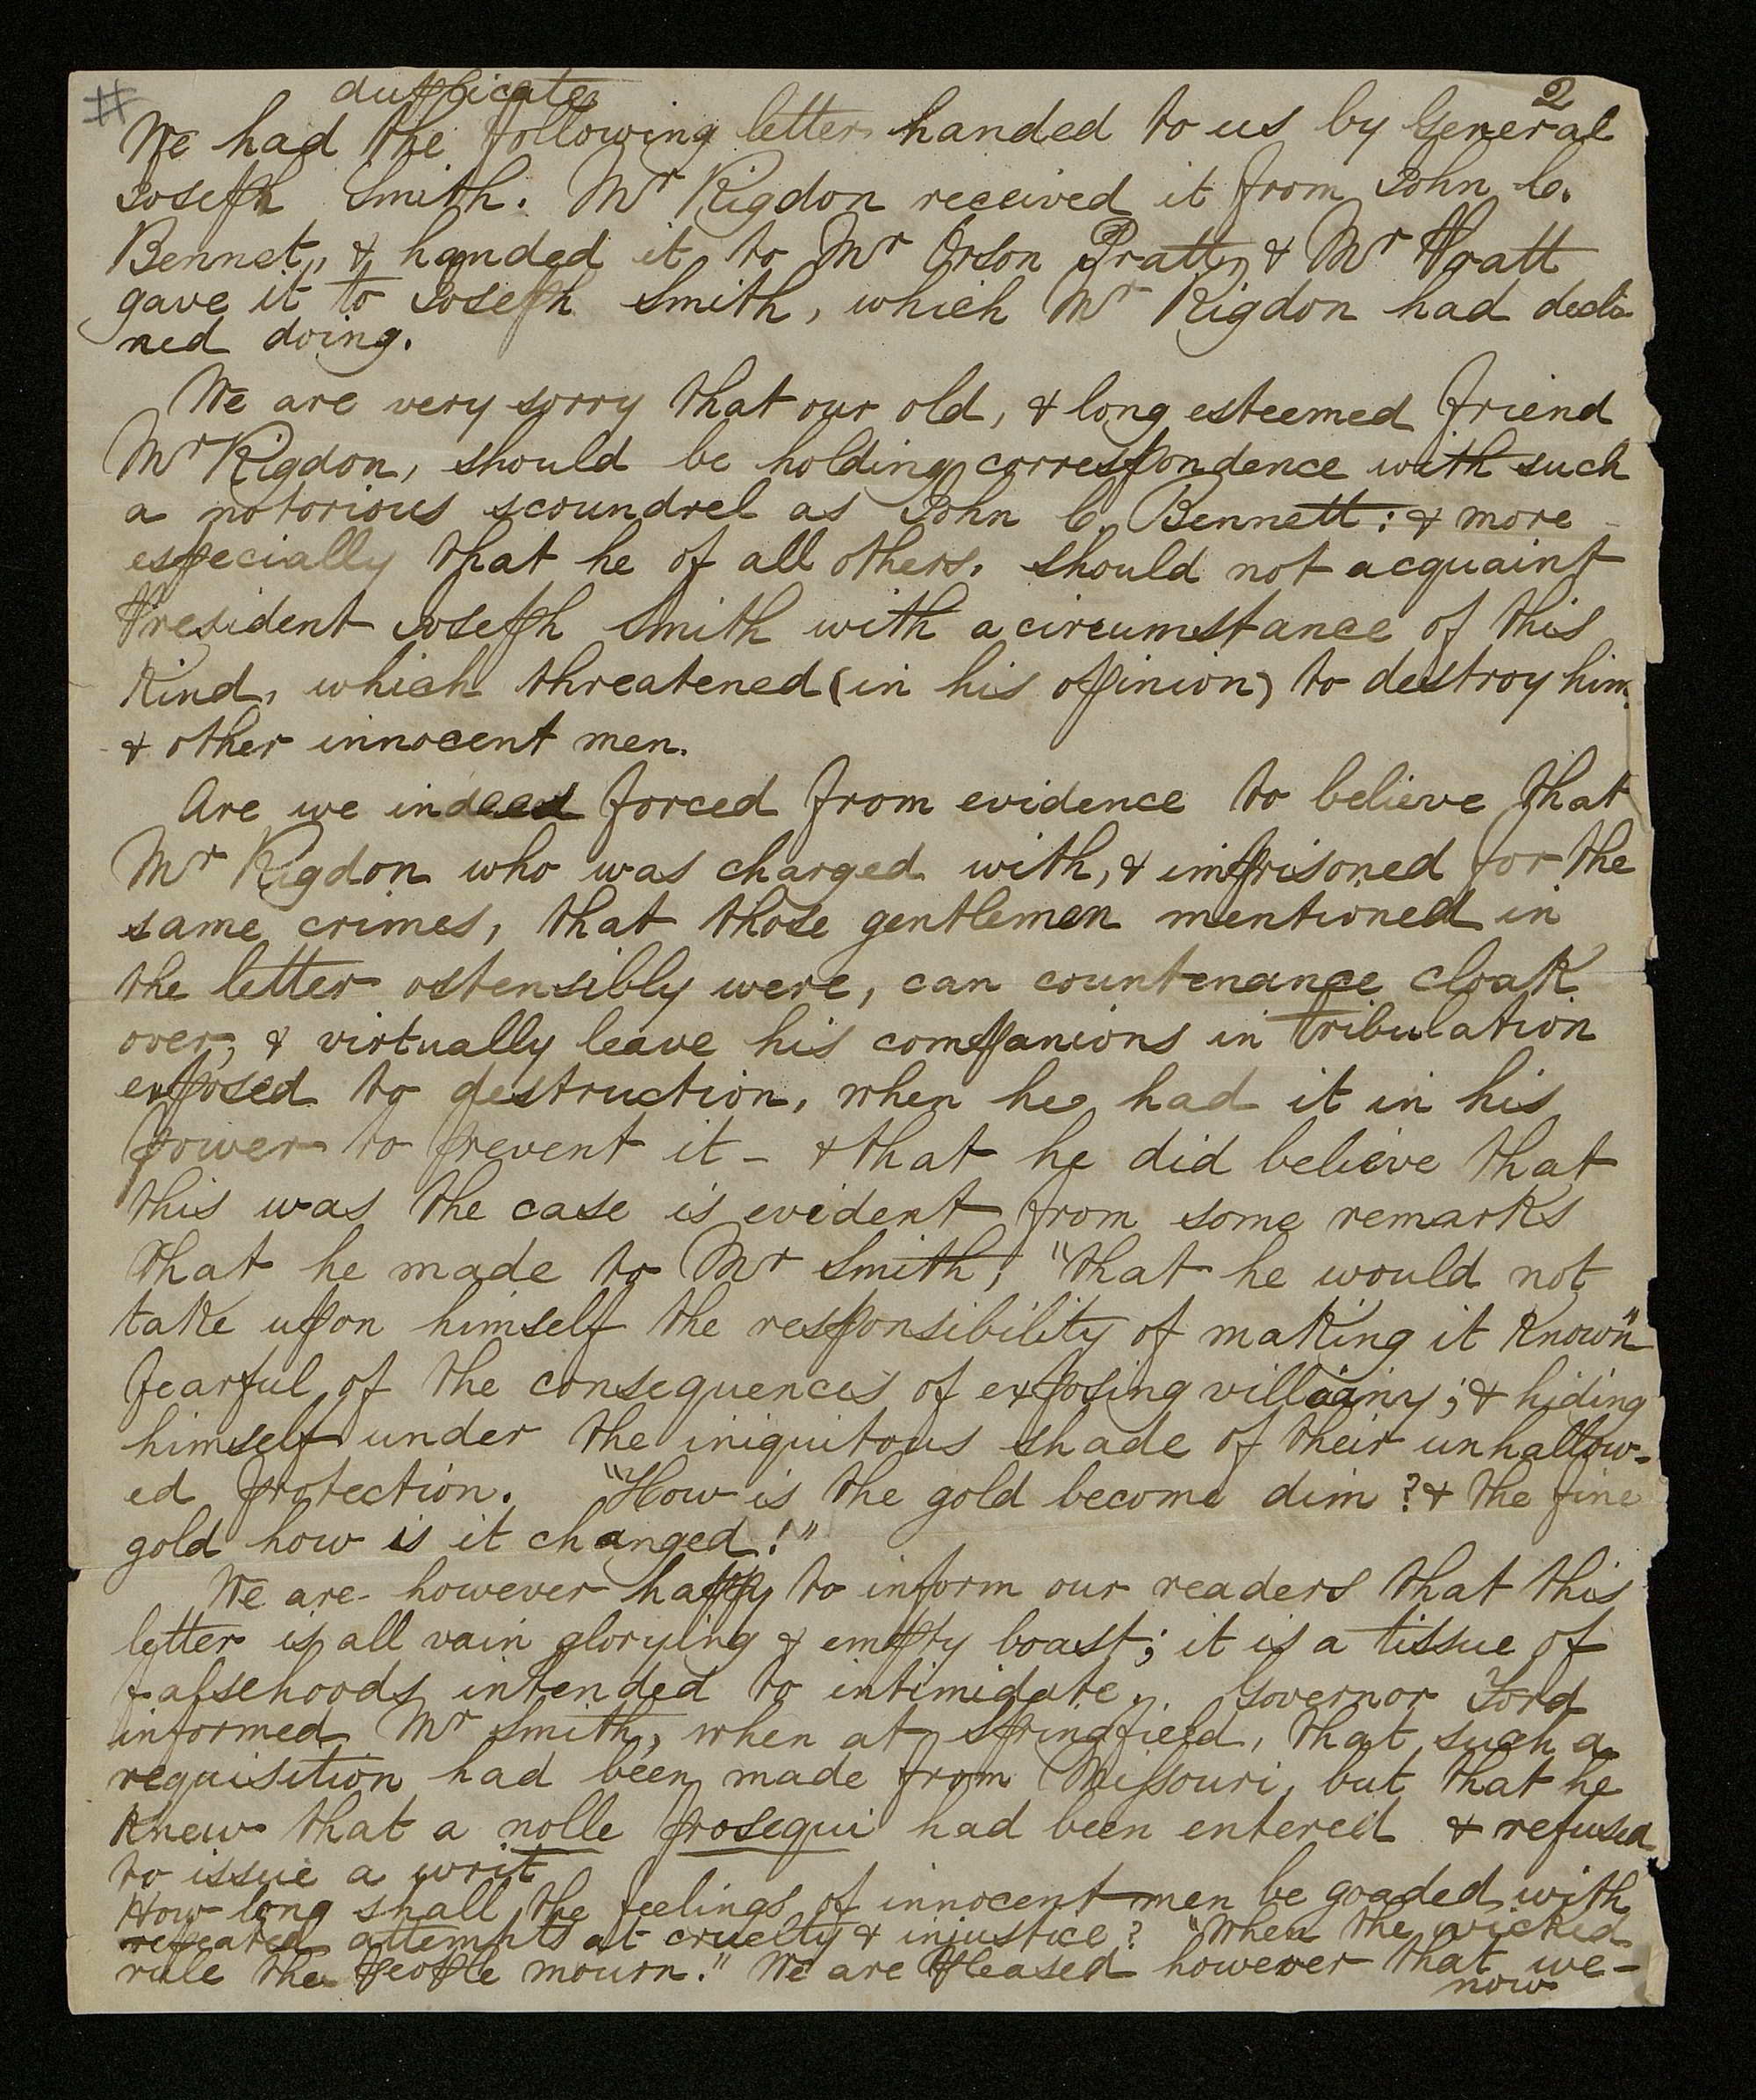 #
duplicate
2
We had the following letter handed to us by General
Joseph Smith. Mr Rigdon received it from John C.
Bennet, & handed it to Mr Orson Pratt, & Mr Pratt
gave it to Joseph Smith, which Mr Rigdon had decli
ned doing.
We are very sorry that our old, & long esteemed friend
Mr Rigdon, should be holding correspondence with such
a notorious scoundrel as John C. Bennett: & more
especially that he of all others, should not acquaint
President Joseph Smith with a circumstance of this
kind, which threatened (in his opinion) to destroy him
& other innocent men.
Are we indeed forced from evidence to believe that
Mr Rigdon who was charged with, & imprisoned for the
same crimes, that those gentlemen mentioned in
the letter ostensibly were, can countenance cloak
over, & virtually leave his companions in tribulation
exposed to destruction, when he had it in his
power to prevent it – & that he did believe that
this was the case is evident from some remarks
that he made to Mr Smith, "that he would not
take upon himself the responsibility of making it known"
fearful of the consequences of exposing villainy; & hiding
himself under the iniquitous shade of their unhallow-
ed protection. "How is the gold become dim? & the fine
gold how is it changed!"
We are however happy to inform our readers that this
letter is all vain glorying & empty boast; it is a tissue of
falsehoods intended to intimidate. Governor Ford
informed Mr Smith, when at Springfield, that such a
requisition had been made from Missouri, but that he
knew that a nolle prosequi had been entered & refused
to issue a writ
How long shall the feelings of innocent men be goaded with
repeated attempts at cruelty & injustice? "When the wicked
rule the people mourn." We are pleased however that we –
now